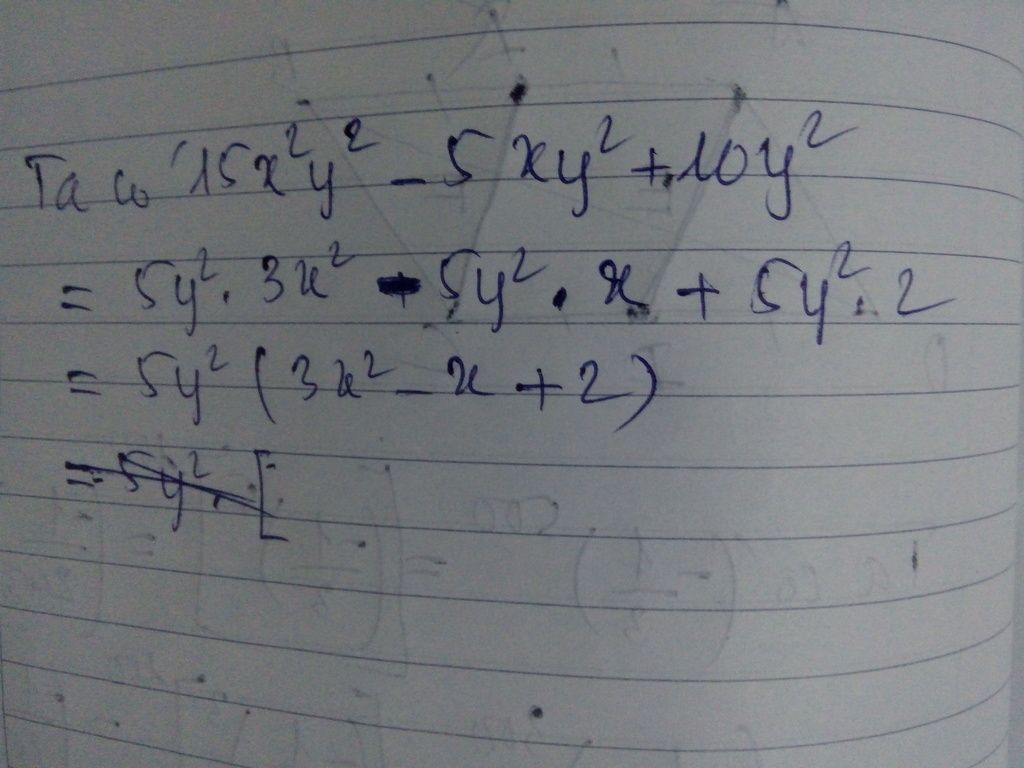 Ta có 15x²y² - 5xy² + 10y²
= 5y². 3x² - 5y² . x + 5y². 2
= 5y² (3x² - x + 2)
= 5y². [